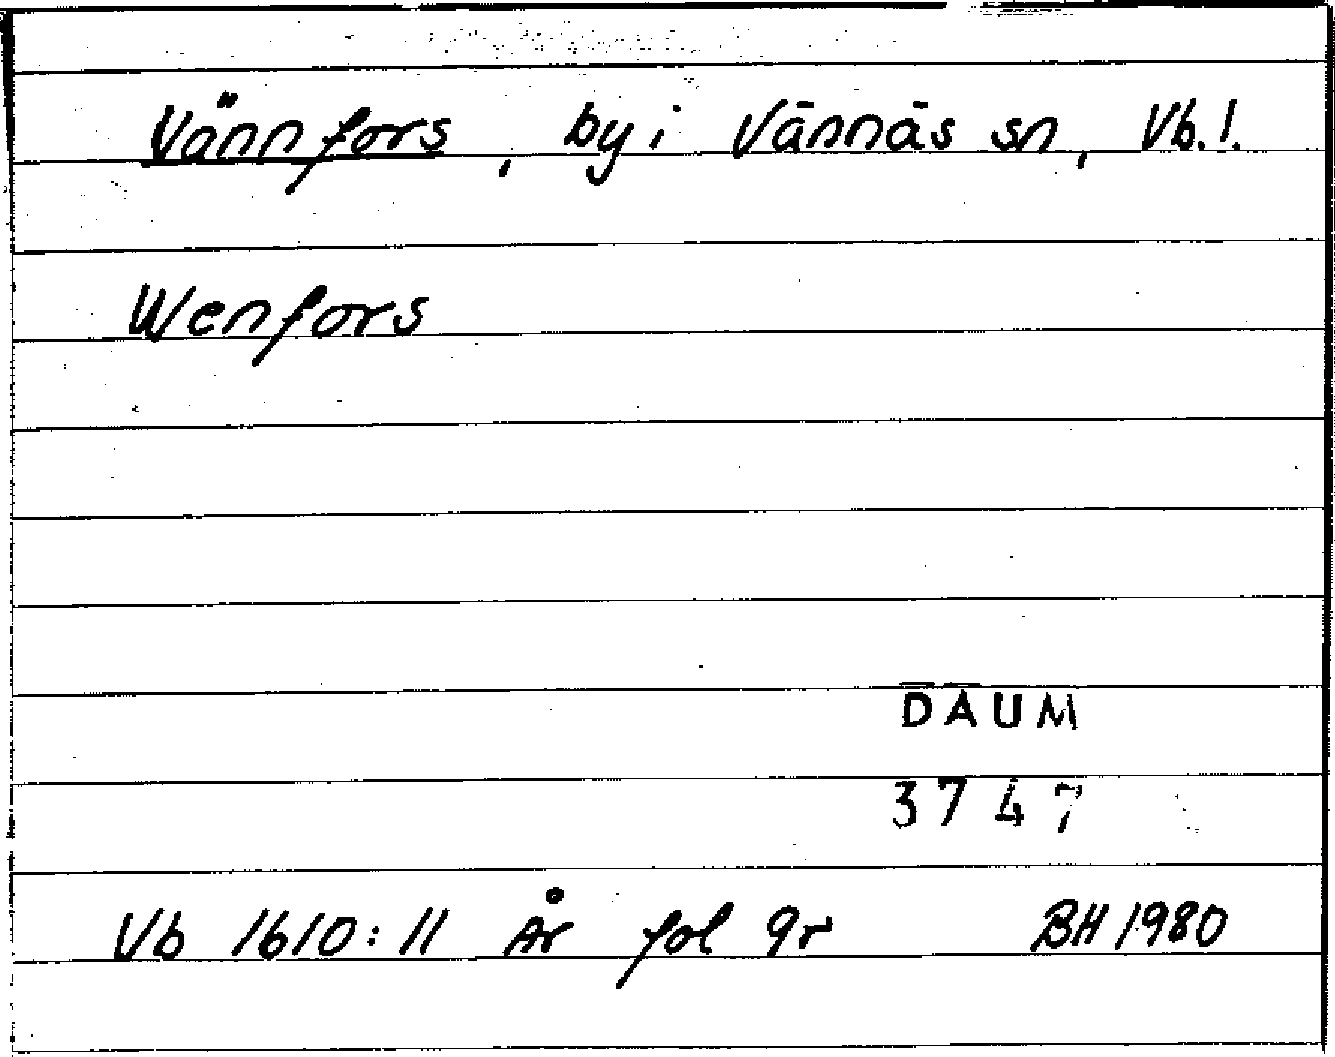 Vännfors, by i Vännäs sn, Vb.l.
Wenfors
DAUM
3747
Vb 1610:11 År fol 9r BH 1980